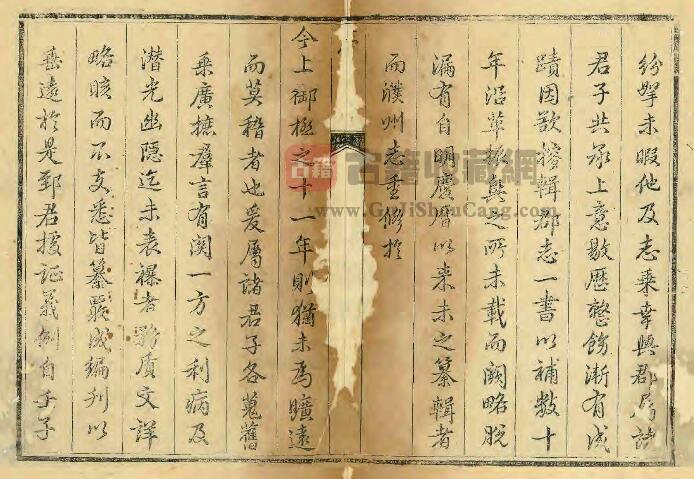 紛拏未暇他及志乘幸與郡局諸
君子共承上意敭歷整飭漸有成
蹟因欲搜輯郡志一書以補數十
年沿革之所未載而闕略脫
漏有自明慶曆以來未之纂輯者
而濮州志重修於
今上御極之十一年則猶未為曠遠
而莫稽者也爰屬諸君子各蒐舊
乘廣摭羣言有関一方之利病及
潛光幽隱迄未表襮者務質文詳
略賅而不支悉皆纂成編刊以
垂遠於是郅君援証義例自手子
古籍 古籍收藏網
www.GuJiShouCang.com